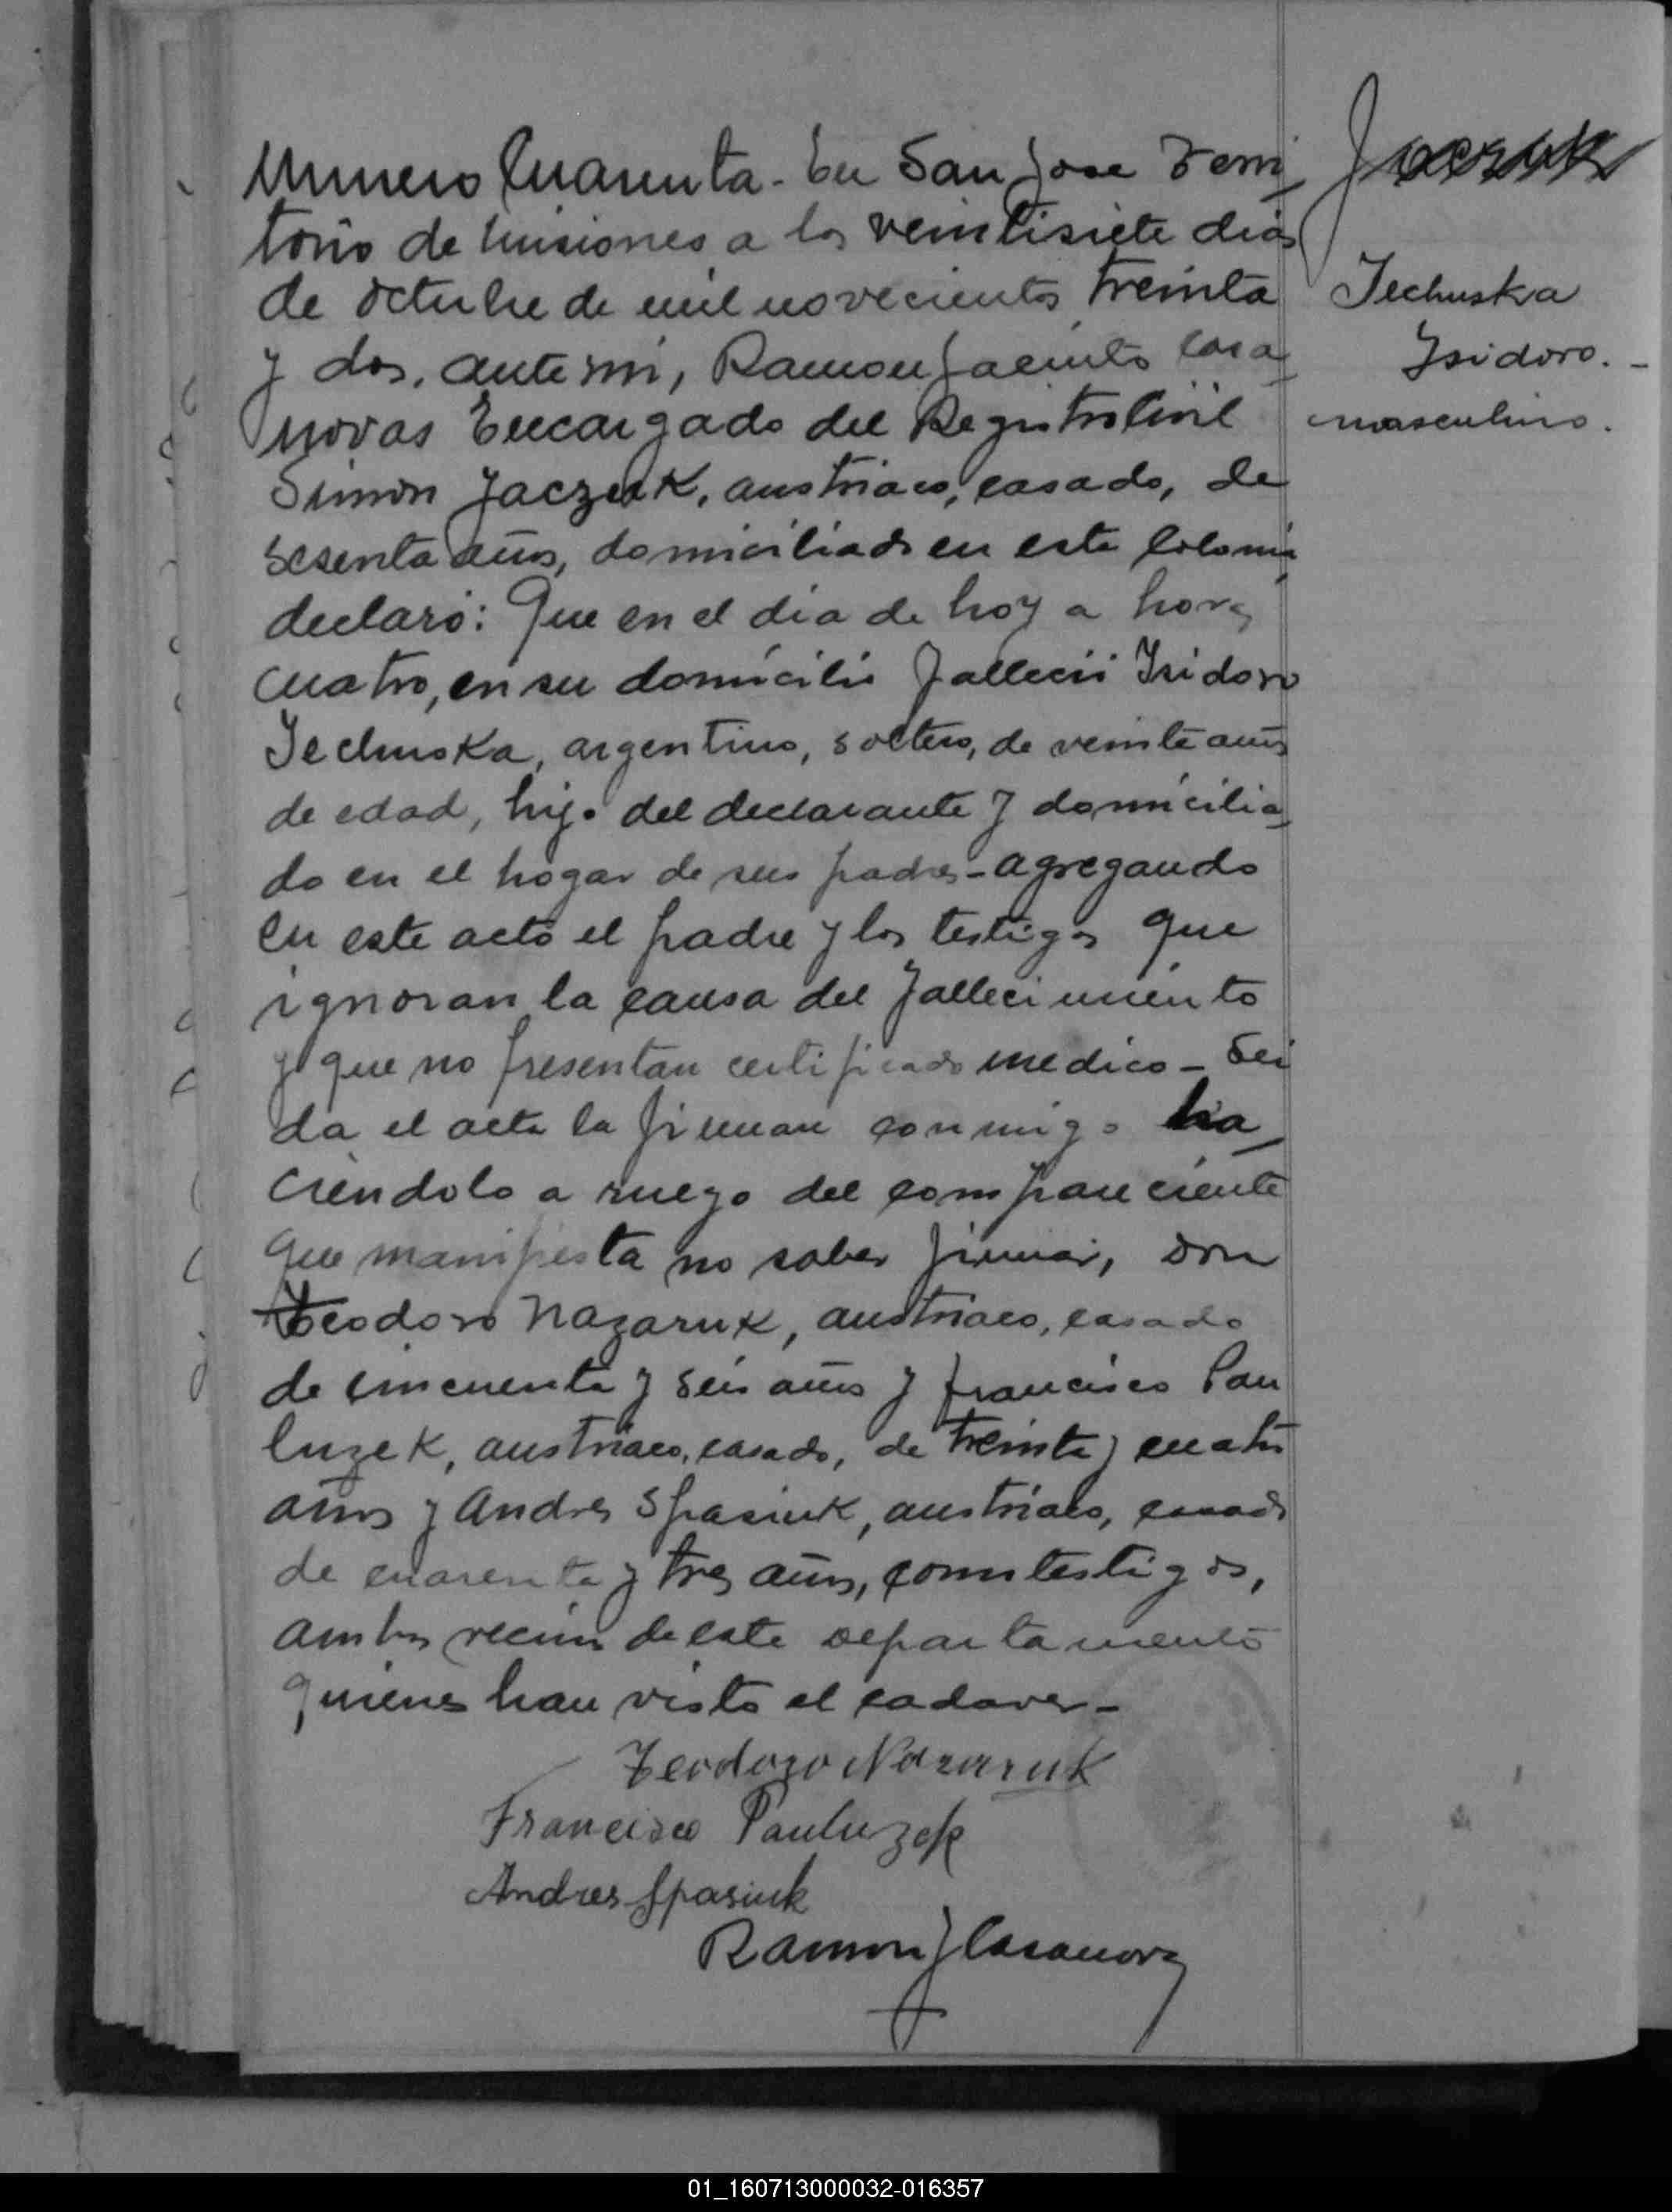 Numero Cuarenta - En San Jose Terri
torio de Misiones a los veintisiete dias
de Octubre de mil novecientos treinta
y dos, ante mi, Ramon Jacinto Casa
novas Encargado del Registro Civil
Simon Jaczuk, austriaco, casado, de
sesenta años, domiciliado en esta Colonia
declaró: Que en el dia de hoy a horas
cuatro, en su domicilio falleció Isidoro
Jechuska, argentino, soltero, de veinte años
de edad, hijo del declarante y domicilia
do en el hogar de sus padres - agregando
en este acto el padre y los testigos que
ignoran la causa del fallecimiento
y que no presentan certificado medico - Lei
da el acta la firman conmigo ha
ciendolo a ruego del compareciente
que manifiesta no saber firmar, don
Teodoro Nazaruk, austriaco, casado
de cincuenta y seis años y francisco Pau
luzek, austriaco, casado, de treinta y cuatro
años y Andres Spasiuk, austriaco, casado
de cuarenta y tres años, como testigos,
ambos vecinos de este departamento
quienes han visto el cadaver -
Teodoro Nazaruk
Francisco Pauluzek
Andres Spasiuk
Ramon J Casanovas
Jaczuk
Jechuska
Isidoro. -
masculino.
01_160713000032-016357